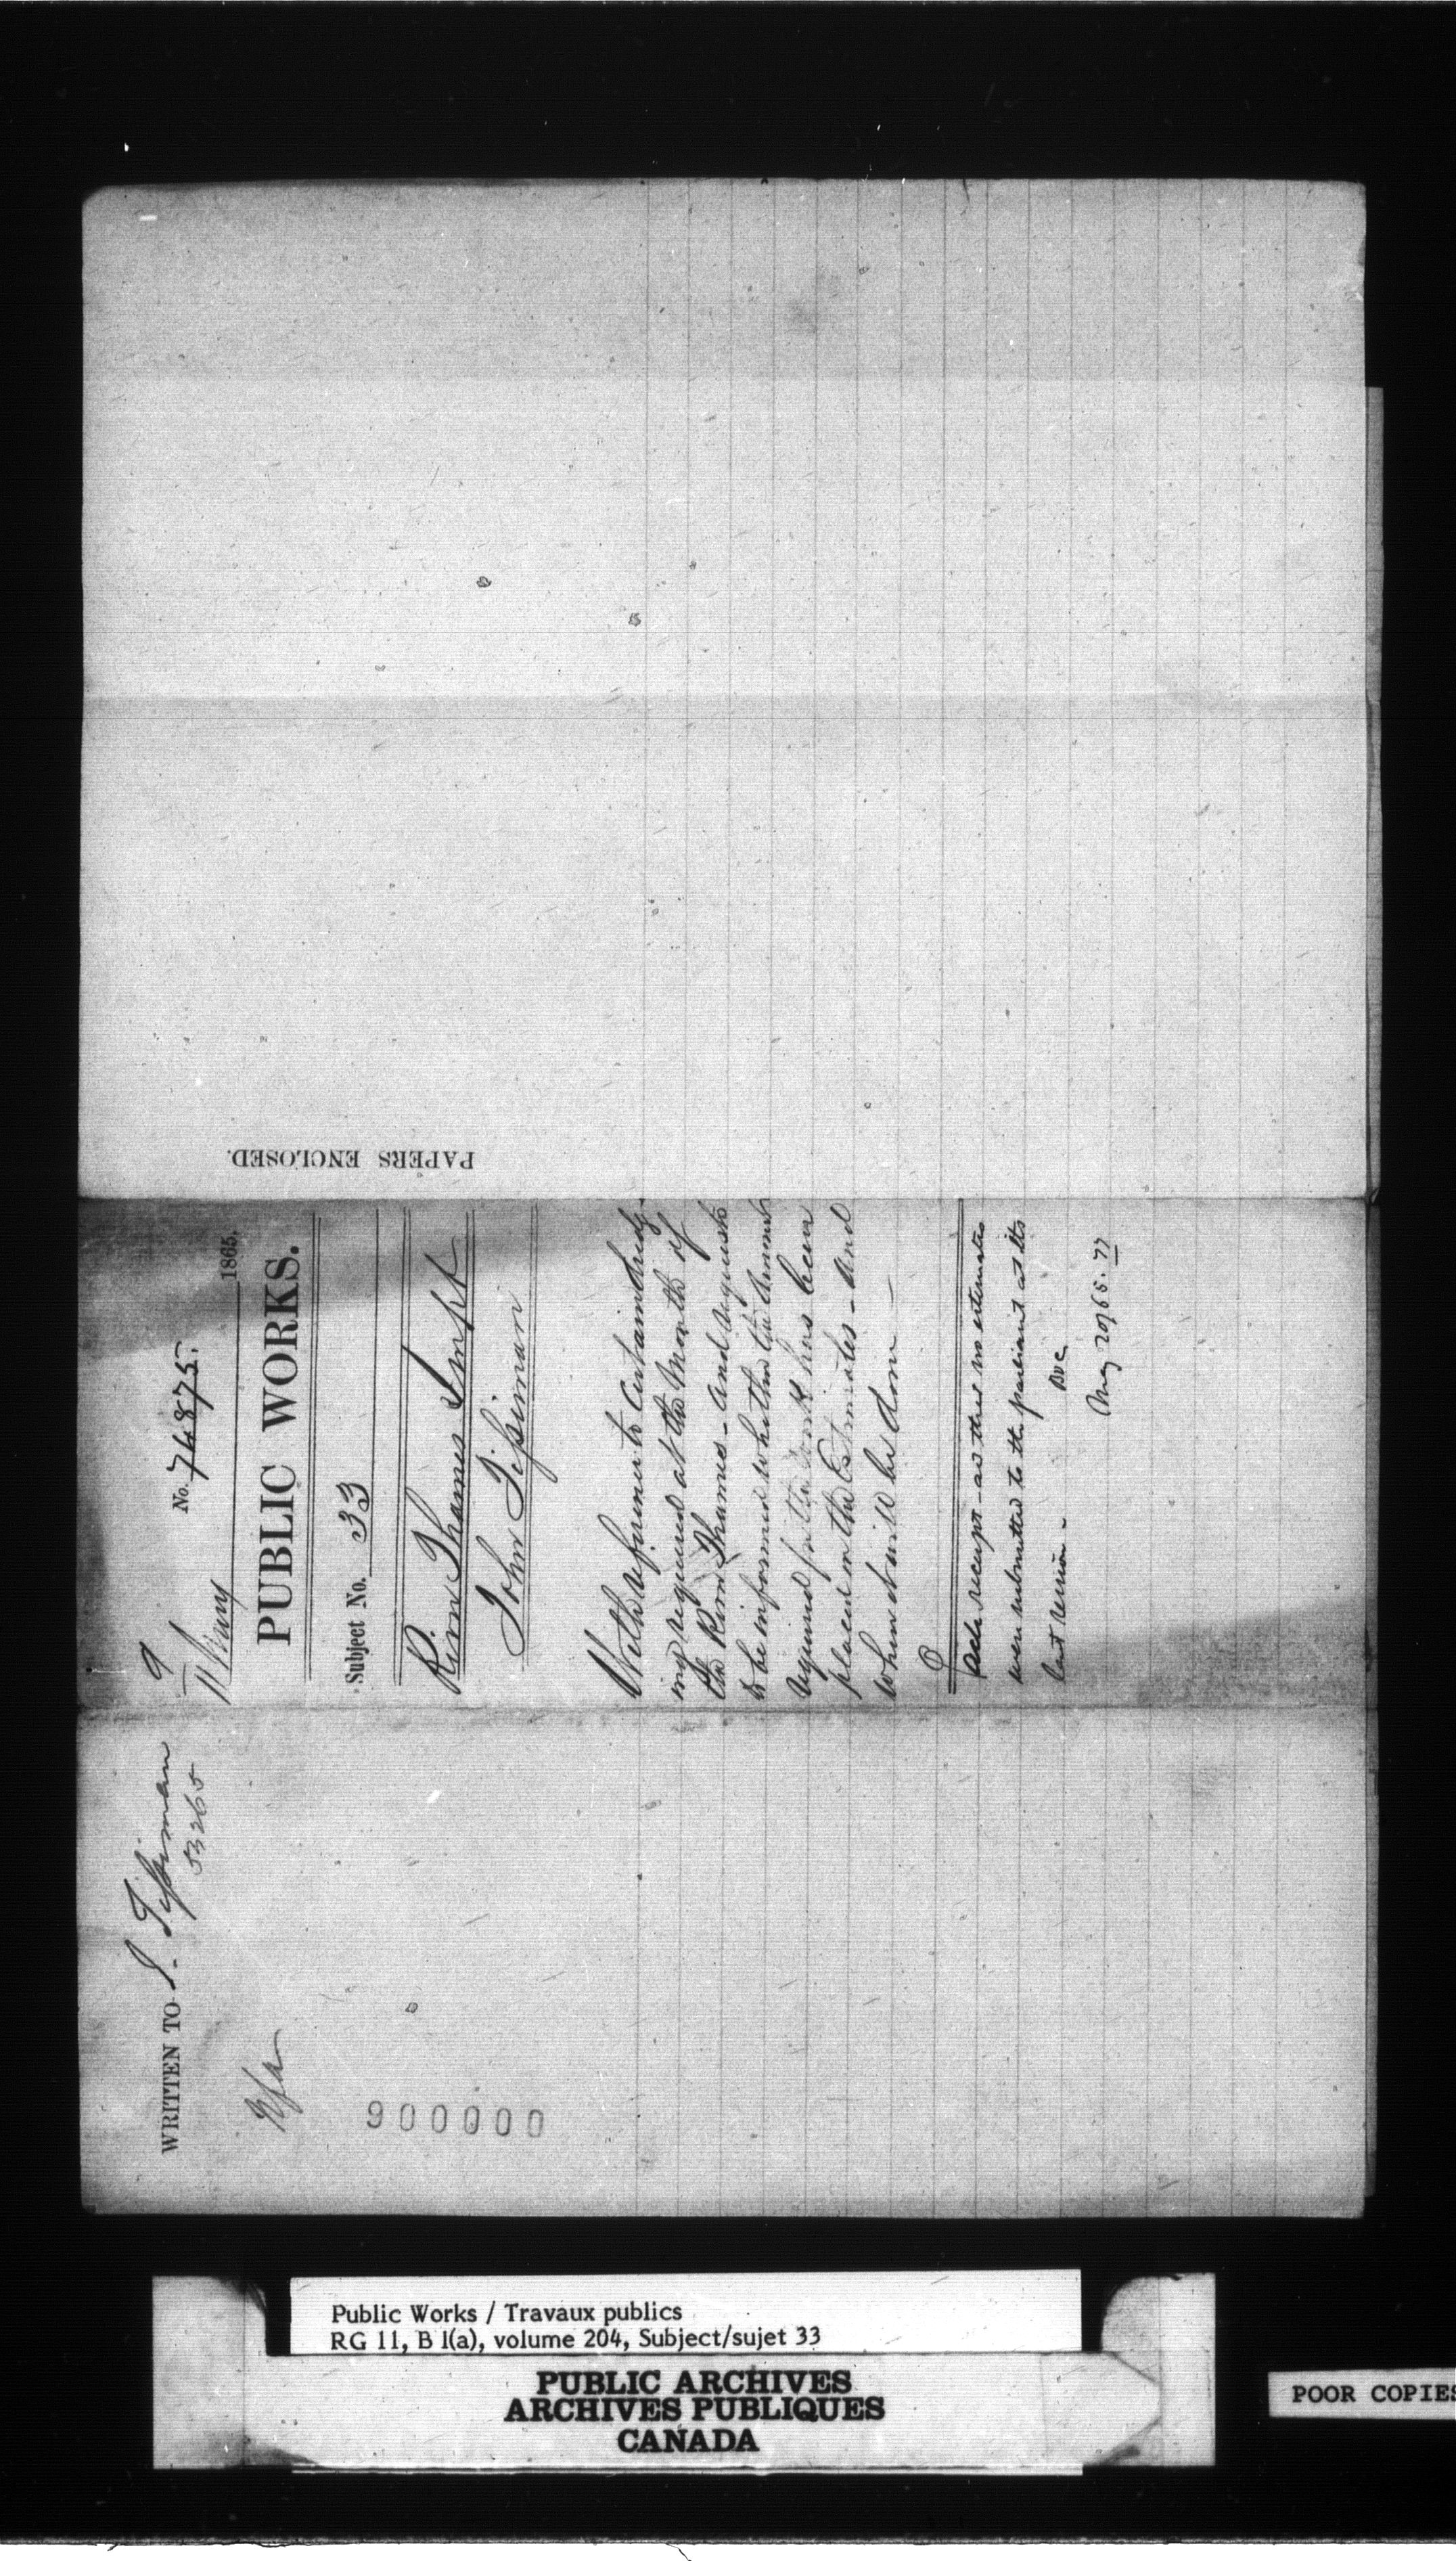 WRITTEN TO J. Tissiman
53265
000006
9
11 May
No. 74875.
1865.
PUBLIC WORKS.
Subject No. 33
River Thames Impt
John Tissiman
With reference to certain dredg
ing required at the Mouth of
the River Thames - and requests
to be informed whether the Amount
required for the work has been
placed in the Estimates - And
when it will be done -
Ack receipt - as there no estimates
were submitted to the parliament at its
last session -
May 20/65. 77
PAPERS ENCLOSED.
Public Works / Travaux publics
RG 11, B 1(a), volume 204, Subject/sujet 33
PUBLIC ARCHIVES
ARCHIVES PUBLIQUES
CANADA
POOR COPIES